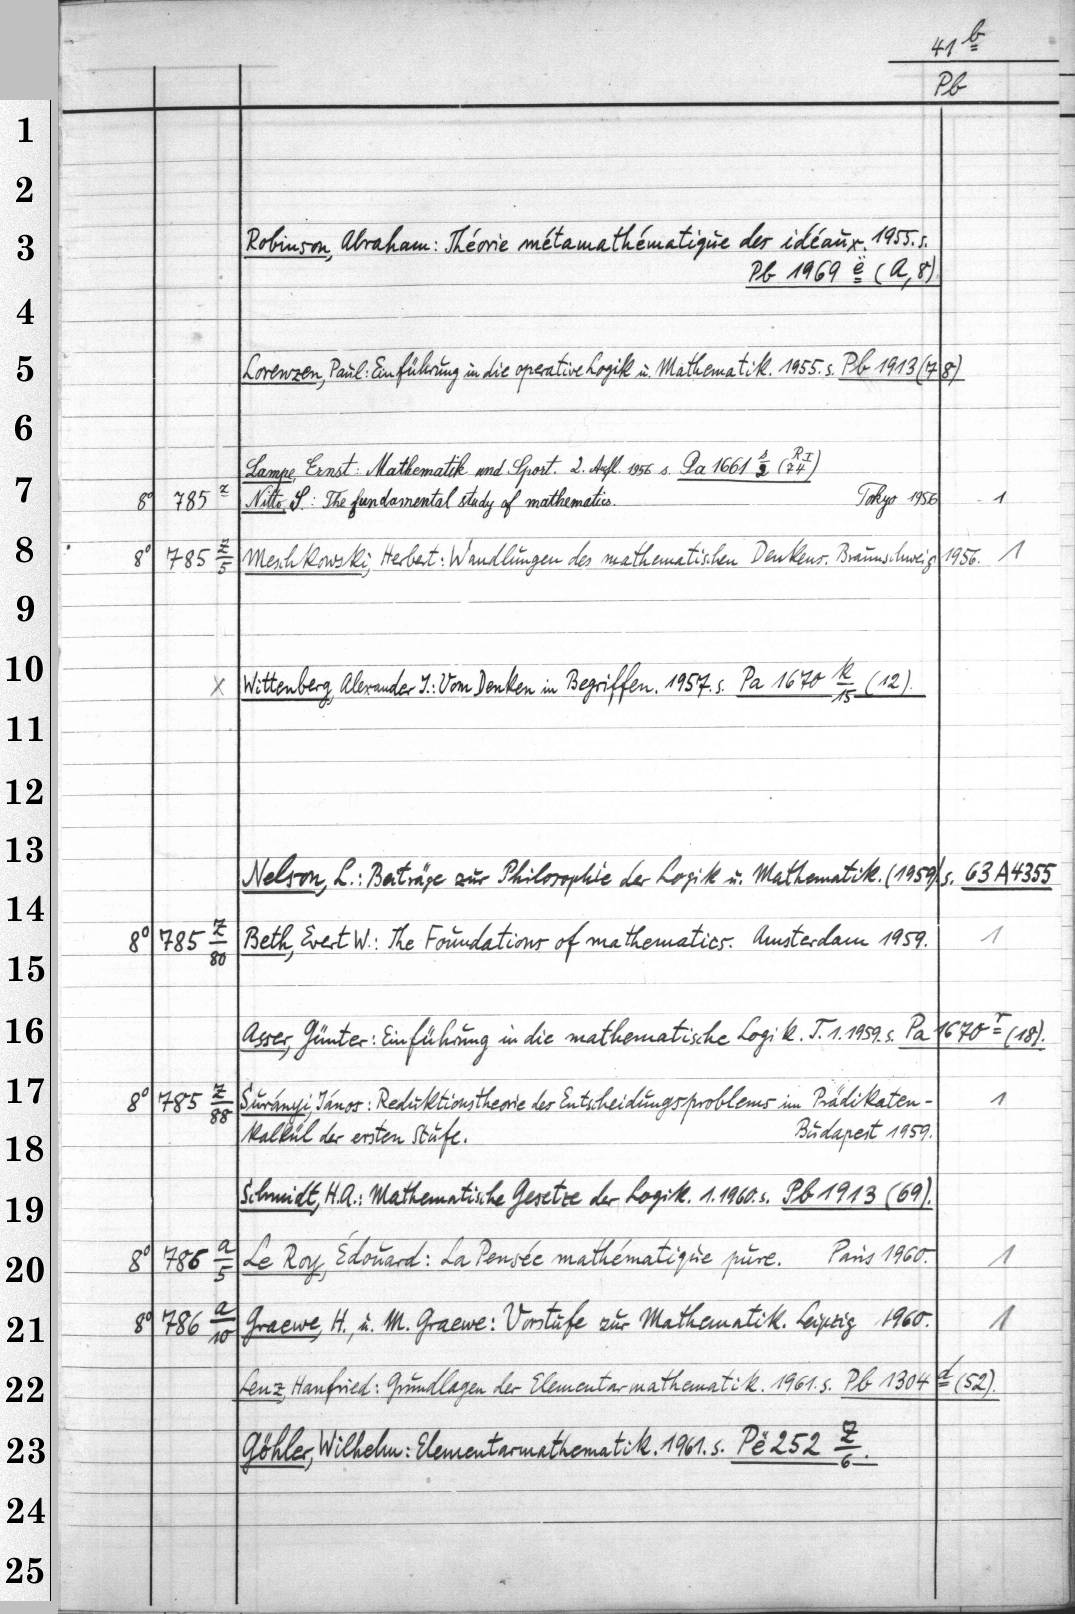 41 b
Pb
1
2
3 Robinson, Abraham: Théorie métamathématique des idéaux. 1955. s.
Pb 1969 ë (A, 8)
4
5 Lorenzen, Paul: Einführung in die operative Logik u. Mathematik. 1955. s. Pb 1913 (78)
6
Lampe, Ernst: Mathematik und Sport. 2. Aufl. 1956 s. Pa 1661 s/2 (RI/74)
7 8° 785 z Nitto, S.: The fundamental study of mathematics. Tokyo 1956 1
8 8° 785 z/5 Meschkowski, Herbert: Wandlungen des mathematischen Denkens. Braunschweig 1956. 1
9
10 X Wittenberg, Alexander I.: Vom Denken in Begriffen. 1957. s. Pa 1670 k/15 (12).
11
12
13
Nelson, L.: Beiträge zur Philosophie der Logik u. Mathematik. (1959). s. 63 A 4355
14
8° 785 z/80 Beth, Evert W.: The Foundations of mathematics. Amsterdam 1959. 1
15
16 Asser, Günter: Einführung in die mathematische Logik. T. 1. 1959. s. Pa 1670 r (18).
17 8° 785 z/88 Surányi, János: Reduktionstheorie des Entscheidungsproblems im Prädikaten- 1
kalkül der ersten Stufe. Budapest 1959.
18
Schmidt, H.A.: Mathematische Gesetze der Logik. 1. 1960. s. Pb 1913 (69).
19
20 8° 786 a/5 Le Roy, Édouard: La Pensée mathématique pure. Paris 1960. 1
21 8° 786 a/10 Graewe, H., u. M. Graewe: Vorstufe zur Mathematik. Leipzig 1960. 1
22 Lenz, Hanfried: Grundlagen der Elementarmathematik. 1961. s. Pb 1304 d (52).
23 Göhler, Wilhelm: Elementarmathematik. 1961. s. Pë 252 z/6.
24
25